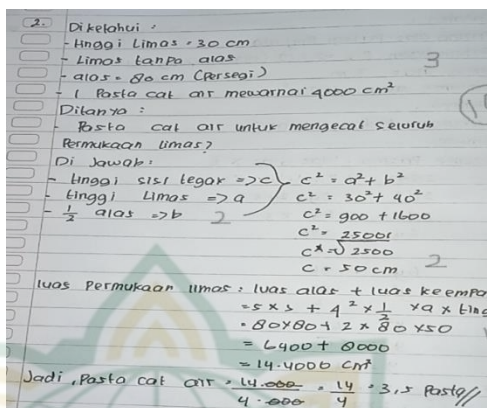 2. Diketahui :
- tinggi Limas = 30 cm
- Limas tanpa alas
- alas = 80 cm (Persegi)
3
- 1 Pasta cat air mewarnai 4000 cm²
Ditanya :
- Pasta cat air untuk mengecat seluruh
Permukaan limas?
Di Jawab :
- tinggi sisi tegak => c
- tinggi Limas => a
- 1/2 alas => b
2
c² = a² + b²
c² = 30² + 40²
c² = 900 + 1600
c² = 2500
c = √2500
c = 50 cm
2
luas Permukaan limas : luas alas + luas keempa
= s × s + 4² × 1/2 × a × ting
= 80 × 80 + 2 × 80 × 50
= 6400 + 8000
= 14.4000 cm²
Jadi, Pasta cat air = 14.000/4.000 = 14/4 = 3,5 Pasta//